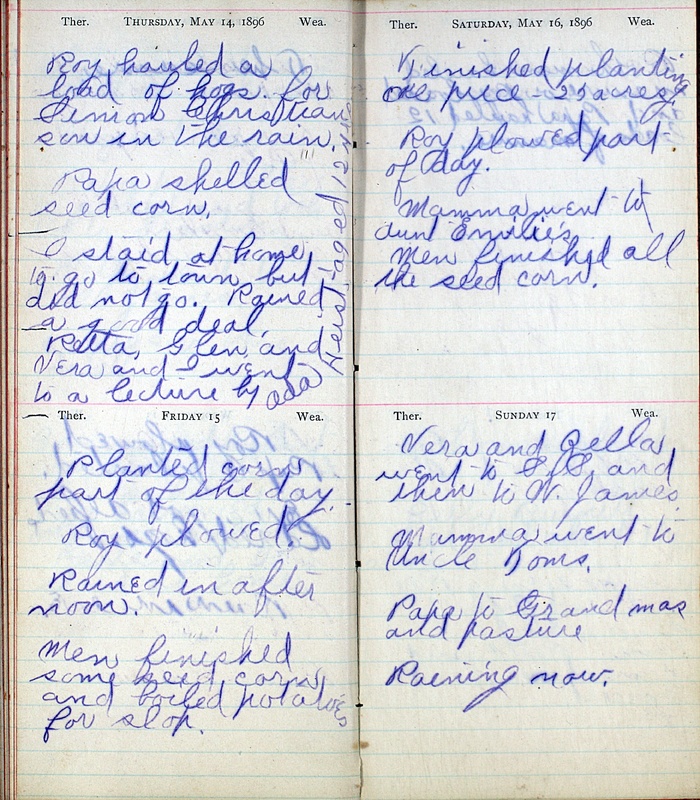 Ther. THURSDAY, MAY 14, 1896 Wea.
Roy hauled a
load of hogs for
Simon Christian
son in the rain.
Papa shelled
seed corn.
I staid at home
to go to town but
did not go. Rained
a good deal.
Retta, Glen, and
Vera and I went
to a lecture by Ada
Heist, aged 12 yrs
Ther. FRIDAY 15 Wea.
Planted corn
part of the day.
Roy plowed.
Rained in after
noon.
Men finished
some seed corn
and boiled potatoes
for slop.
Ther. SATURDAY, MAY 16, 1896 Wea.
Finished planting
one piece - 23 acres
Roy plowed part
of day.
Mamma went to
aunt Emilies
Men finished all
the seed corn.
Ther. SUNDAY 17 Wea.
Vera and Zella
went to S.S. and
then to W. James
Mamma went to
Uncle Toms.
Papa to Grandmas
and pasture
Raining now.